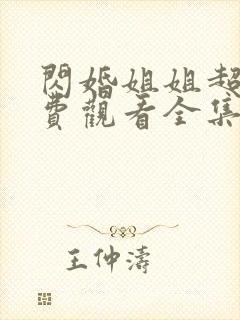 閃婚姐姐超
費觀看全集
王仲濤